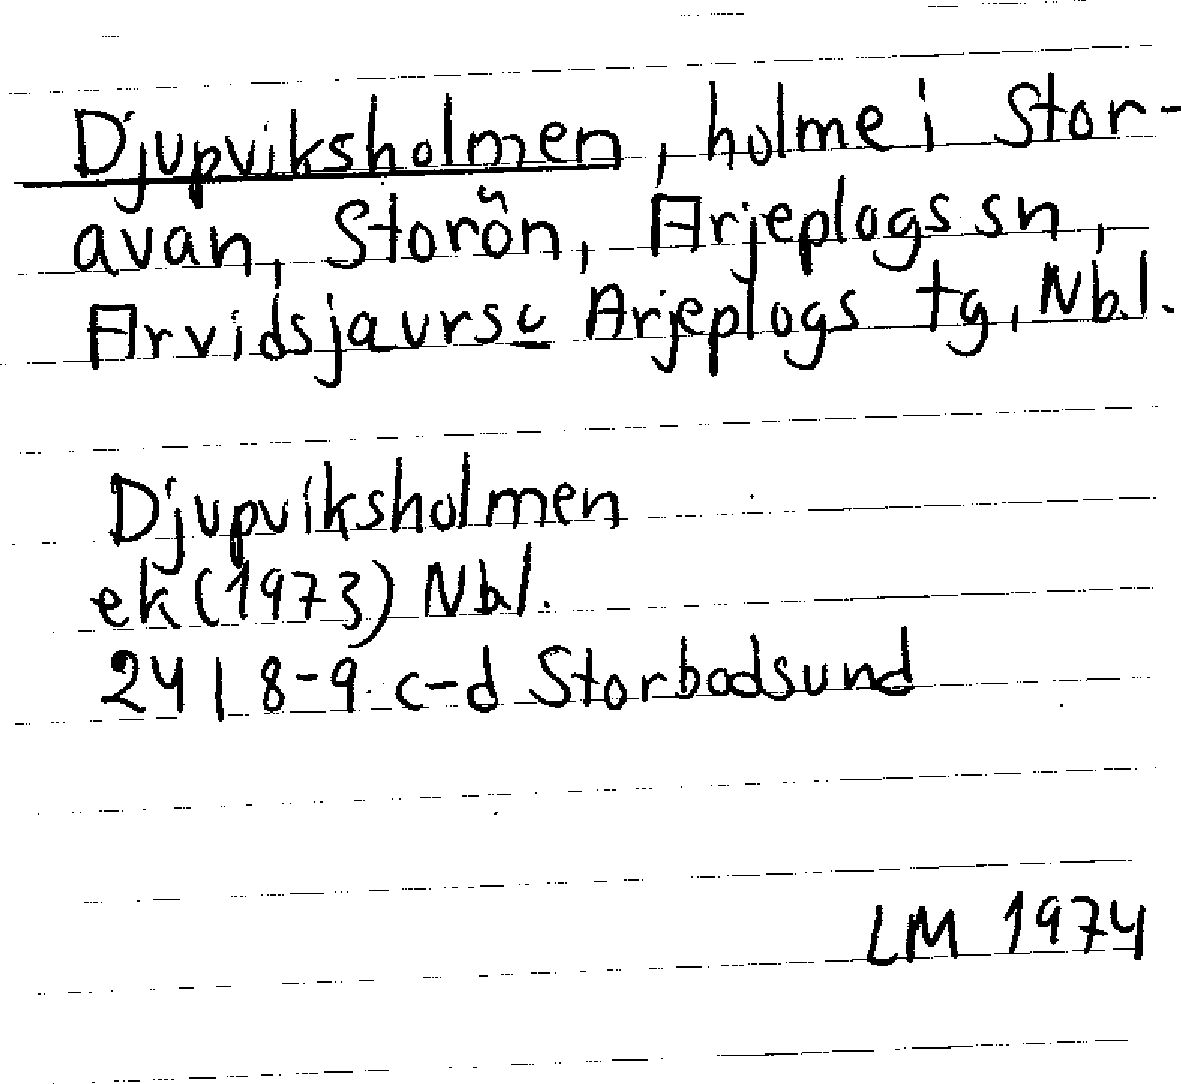 Djupviksholmen, holme i Stor-
avan, Storön, Arjeplogs sn,
Arvidsjaurs o Arjeplogs tg, Nbl.
Djupviksholmen
ek (1973) Nbl.
24 I 8-9 c-d Storbodsund
LM 1974